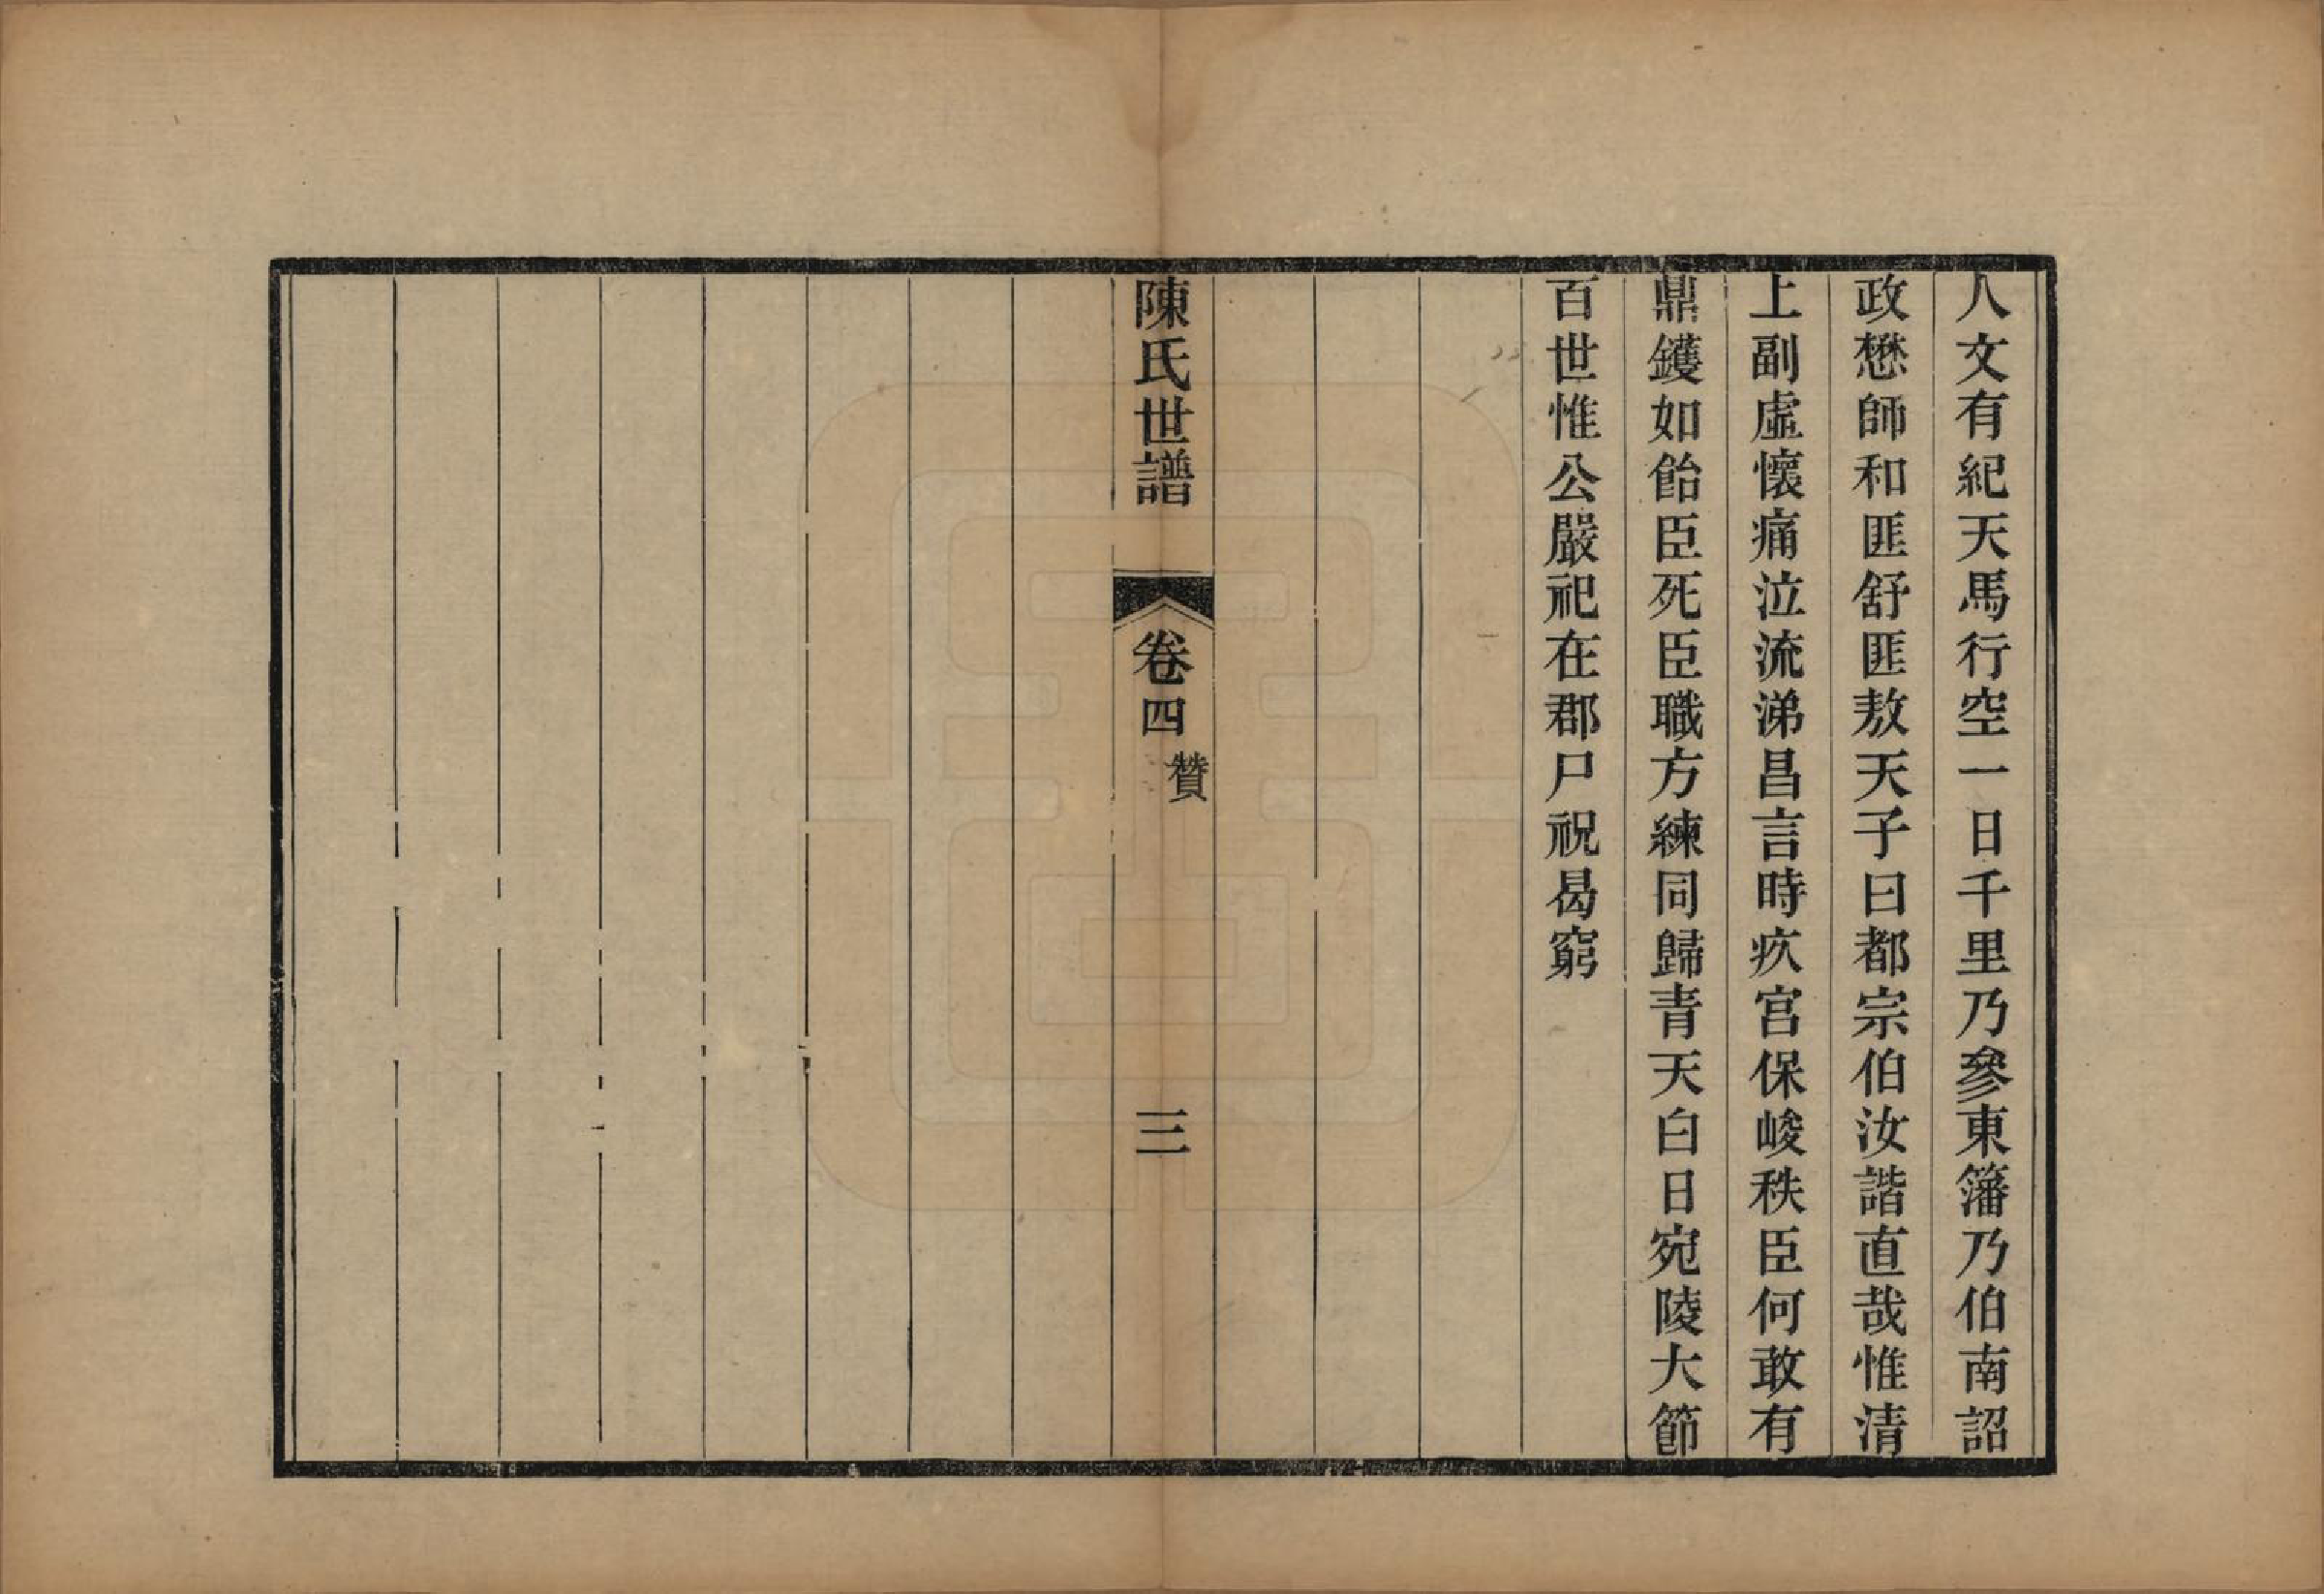 人文有紀天馬行空一日千里乃參東籓乃伯南詔
政懋師和匪舒匪敖天子曰都宗伯汝諧直哉惟清
上副虛懷痛泣流涕昌言時疚宮保峻秩臣何敢有
鼎鑊如飴臣死臣職方練同歸青天白日宛陵大節
百世惟公嚴祀在郡尸祝曷窮
陳氏世譜 卷四 贊 三